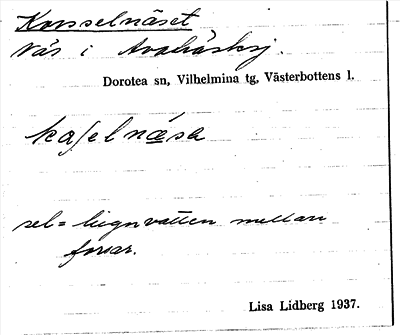 Korsselnäset
Näs i Avaträsksj.
Dorotea sn, Vilhelmina tg, Västerbottens l.
kaſelnæsa
sel = lugnvatten mellan
forsar.
Lisa Lidberg 1937.